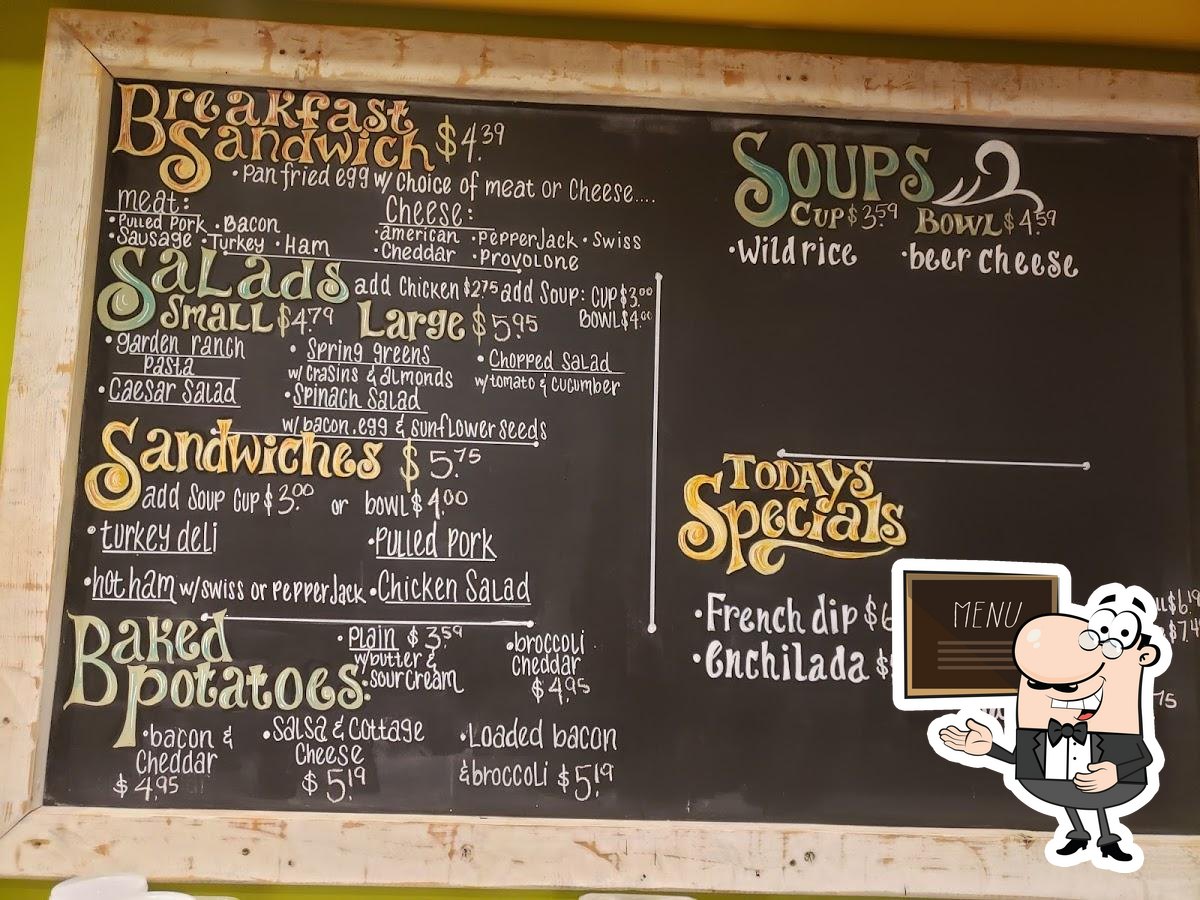 Breakfast
Sandwich $4.39
• pan fried egg w/ choice of meat or cheese....
meat:
• Pulled Pork • Bacon
• Sausage • Turkey • Ham
Cheese:
• american • PepperJack • Swiss
• Cheddar • Provolone
Salads add Chicken $2.75 add Soup: cup $3.00
Bowl $4.00
Small $4.79 Large $5.95
• garden ranch
pasta
• Caesar Salad
• Spring greens
w/ crasins & almonds
• Spinach Salad
w/ bacon, egg & sunflower seeds
• Chopped Salad
w/ tomato & cucumber
Sandwiches $5.75
add Soup cup $3.00 or bowl $4.00
• turkey deli
• Pulled Pork
• hot ham w/ swiss or PepperJack
• Chicken Salad
Baked
potatoes:
• Plain $3.59
w/ butter &
sour cream
• broccoli
cheddar
$4.95
• bacon &
Cheddar
$4.95
• Salsa & Cottage
Cheese
$5.19
• Loaded bacon
& broccoli $5.19
Soups
Cup $3.59 Bowl $4.59
• Wild rice • beer cheese
Todays
Specials
• French dip $6
• Enchilada $
MENU
$6.19
$7.4
75